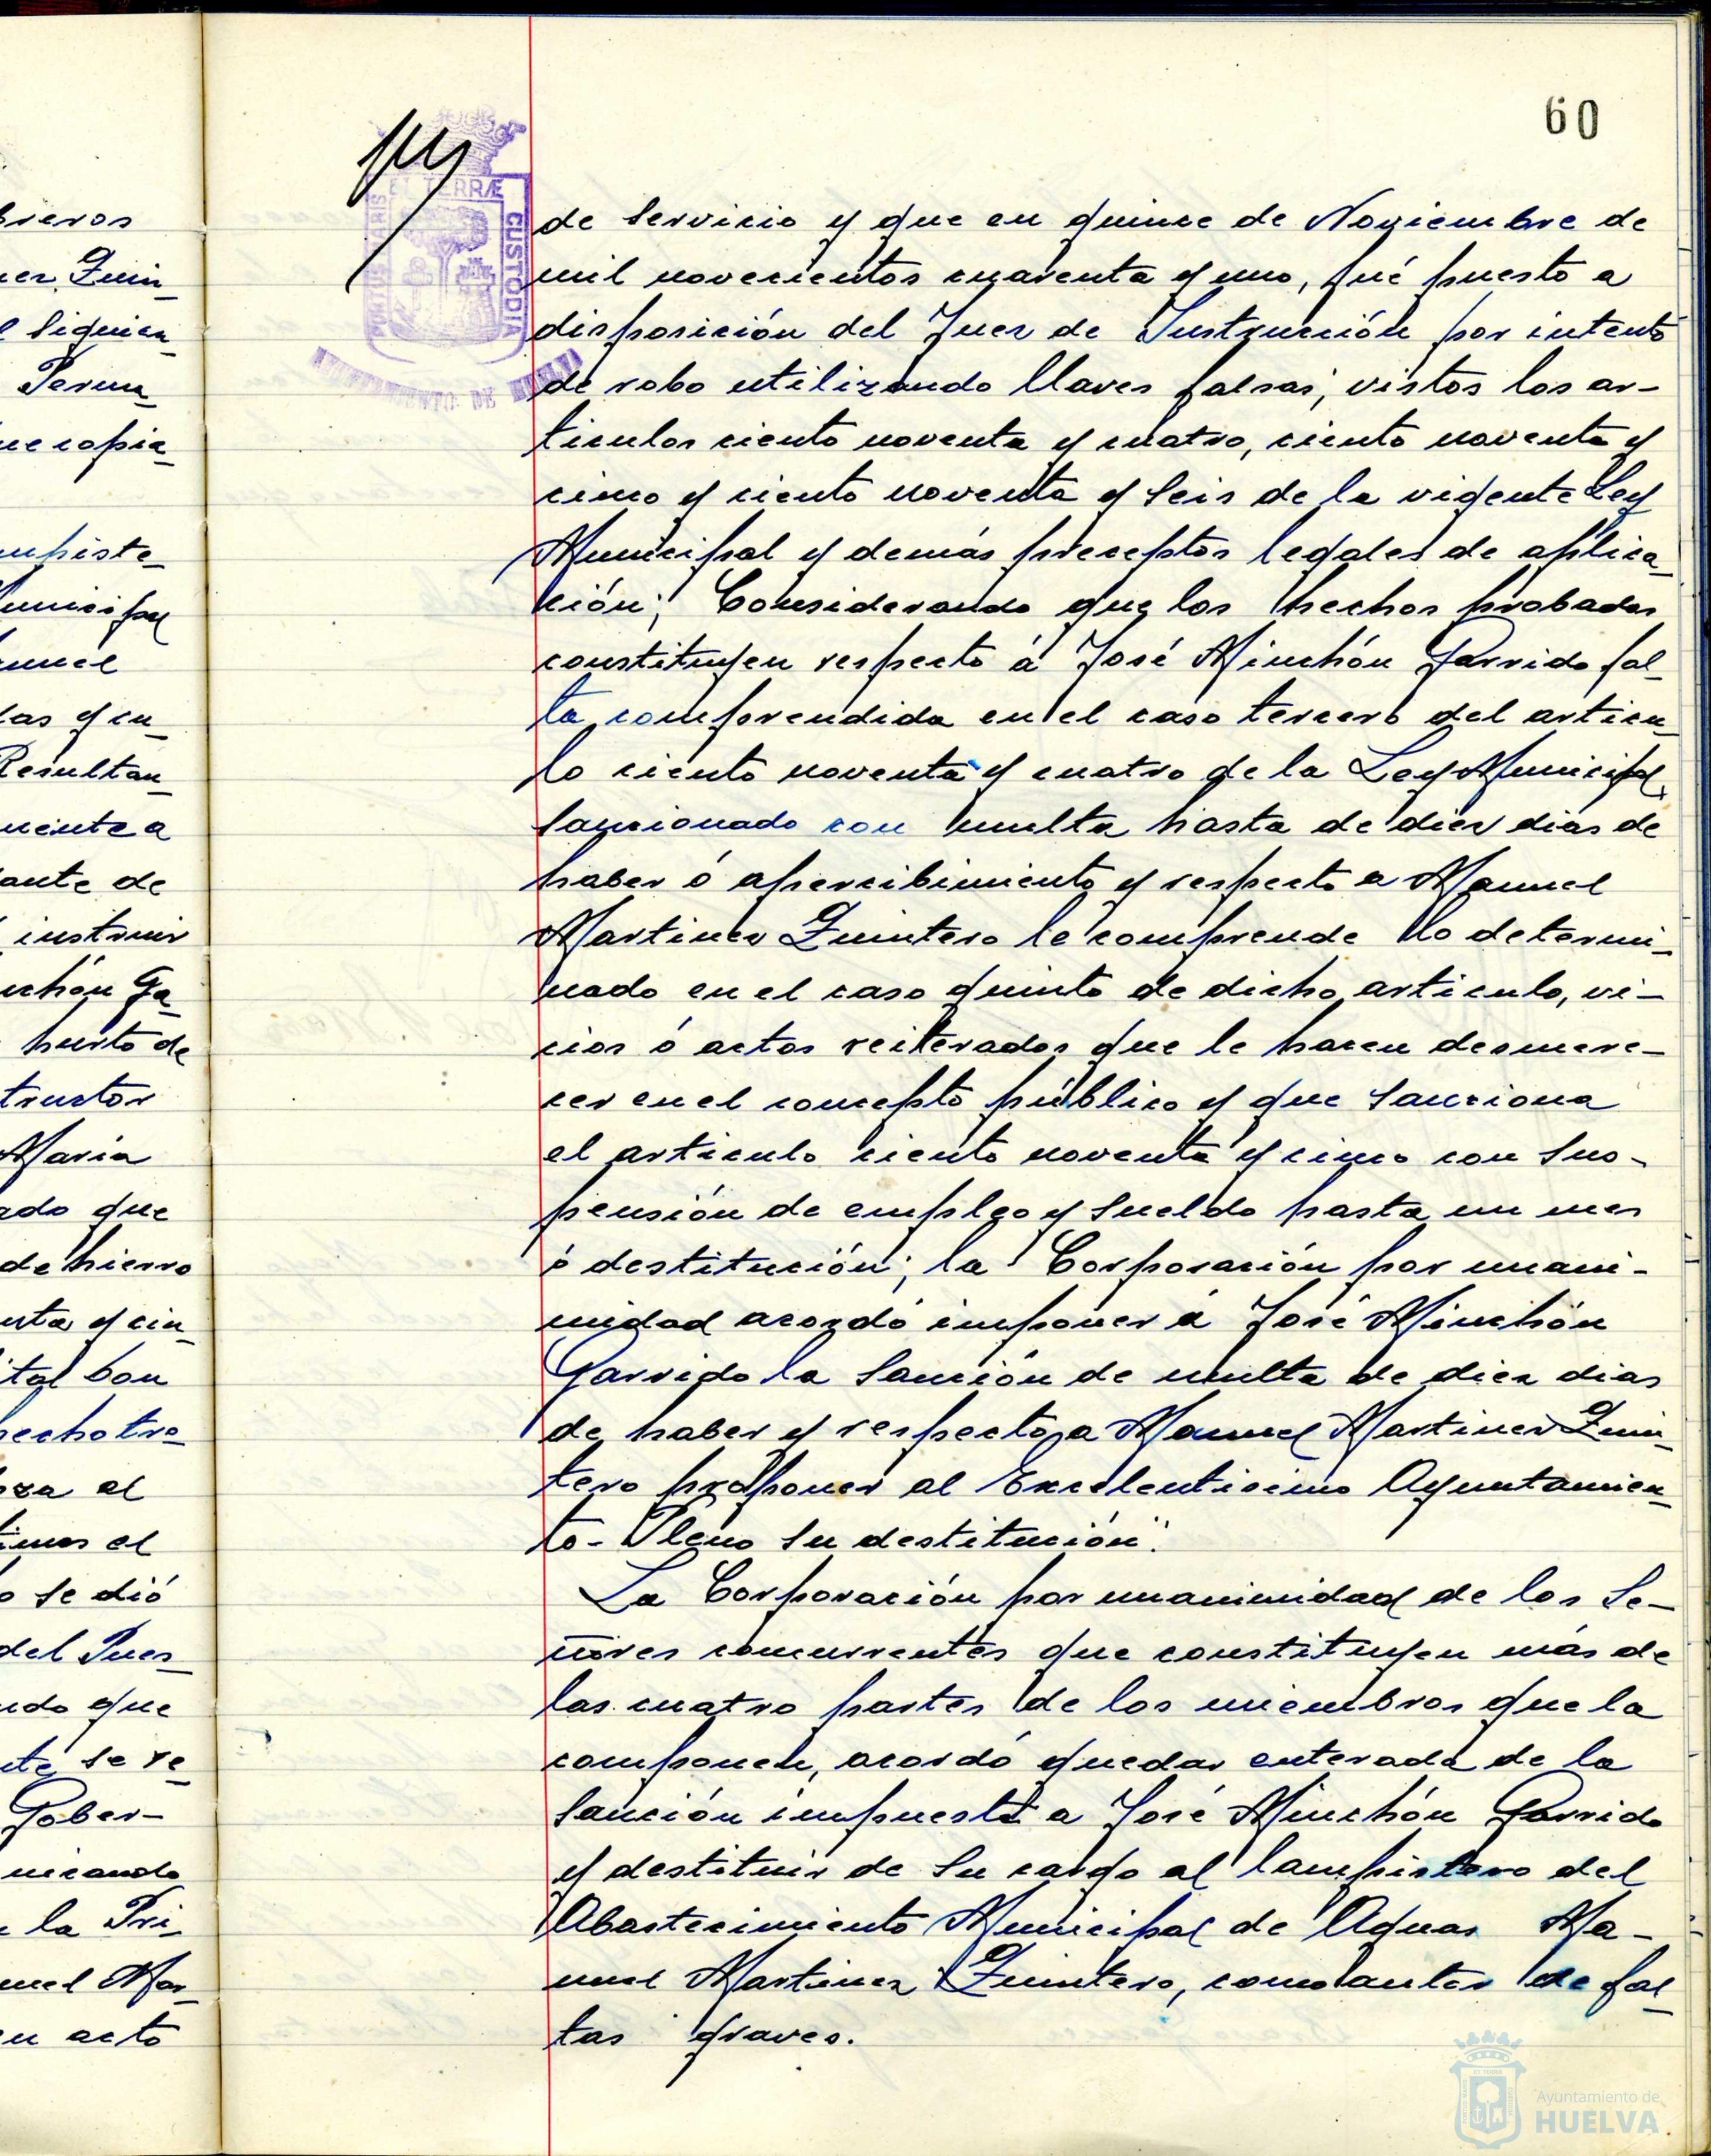 60
PORTUS MARIS ET TERRÆ CUSTODIA
AYUNTAMIENTO DE HUELVA
de servicio y que en quince de Noviembre de
mil novecientos cuarenta y uno, fué puesto a
disposición del Juez de Instrucción por intento
de robo utilizando llaves falsas; vistos los ar-
ticulos ciento noventa y cuatro, ciento noventa y
cinco y ciento noventa y seis de la vigente Ley
Municipal y demás preceptos legales de aplica-
ción; Considerando que los hechos probados
constituyen respecto á José Minchón Garrido fal-
ta comprendida en el caso tercero del articu-
lo ciento noventa y cuatro de la Ley Municipal,
sancionado con multa hasta de diez dias de
haber ó apercibimiento y respecto a Manuel
Martinez Quintero le comprende lo determi-
nado en el caso quinto de dicho articulo, vi-
cios ó actos reiterados que le hacen desmere-
cer en el concepto público y que sanciona
el articulo ciento noventa y cinco con sus-
pensión de empleo y sueldo hasta un mes
ó destitución; la Corporación por unani-
midad acordó imponer á José Minchón
Garrido la sanción de multa de diez dias
de haber y respecto a Manuel Martinez Quin-
tero proponer al Excelentisimo Ayuntamien-
to-Pleno su destitución".
La Corporación por unanimidad de los Se-
ñores concurrentes que constituyen más de
las cuatro partes de los miembros que la
componen, acordó quedar enterada de la
sanción impuesta a José Minchón Garrido
y destituir de su cargo al lampistero del
Abastecimiento Municipal de Aguas Ma-
nuel Martinez Quintero, como autor de fal-
tas graves.
breros
ez Quin-
Siguien-
Perma-
ue copia-
mpiste-
unicipal
nuel
las y en-
Resultan-
mente a
ante de
instruir
nchón Ga-
hurto de
tructor
Maria
ado que
de hierro
nta y cin-
ital con
hecho tra-
nza el
timos el
o se dió
del Pues-
ndo que
te, se re-
Gober-
nicando
la Pri-
uel Mar-
en acto
Ayuntamiento de
HUELVA